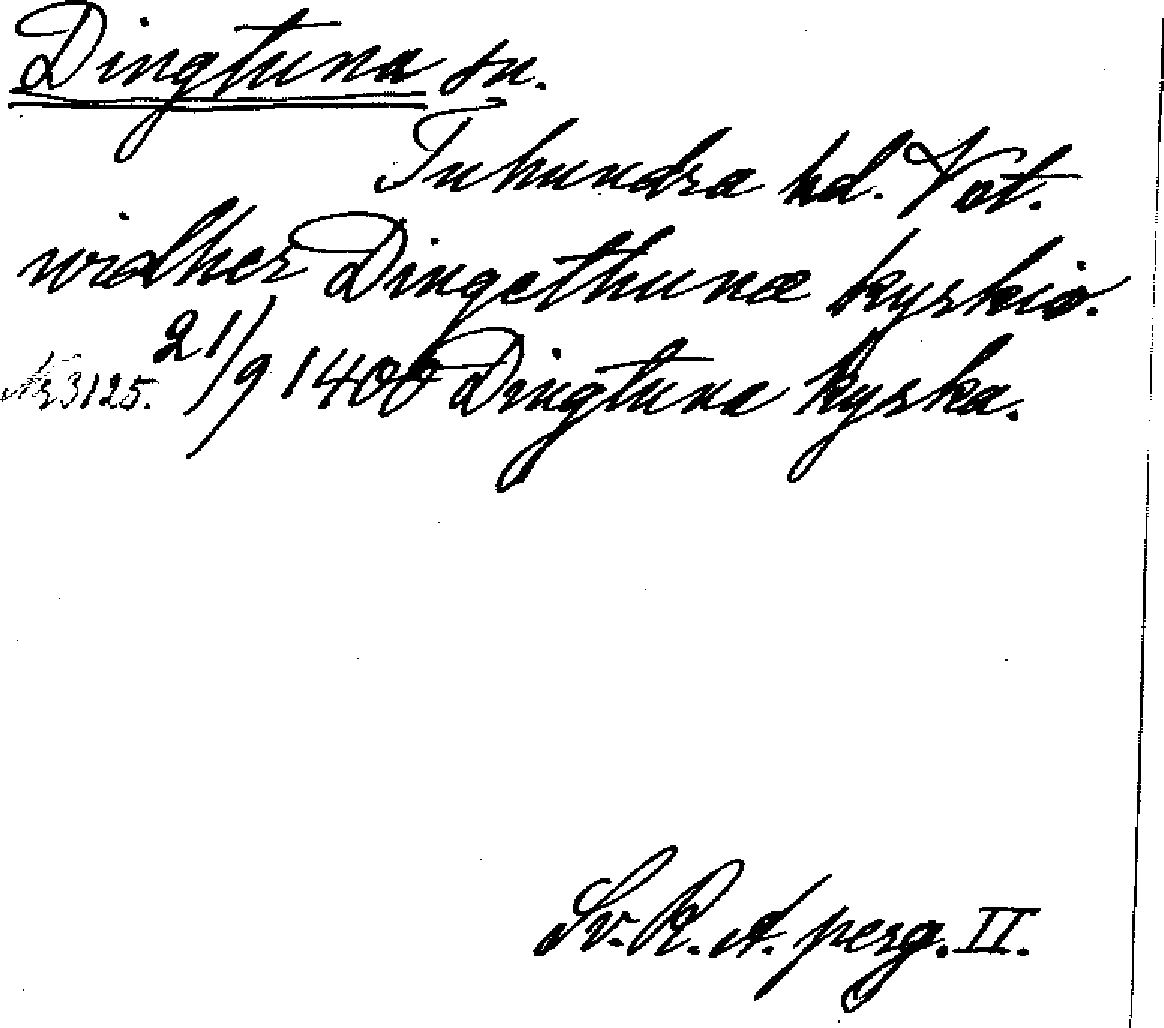 Dingtuna sn.
Tuhundra hd. Vst.
widher Dingethunæ kyrkio.
Nr 3125. 21/9 1400 Dingtuna kyrka.
Sv. R. A. perg. II.